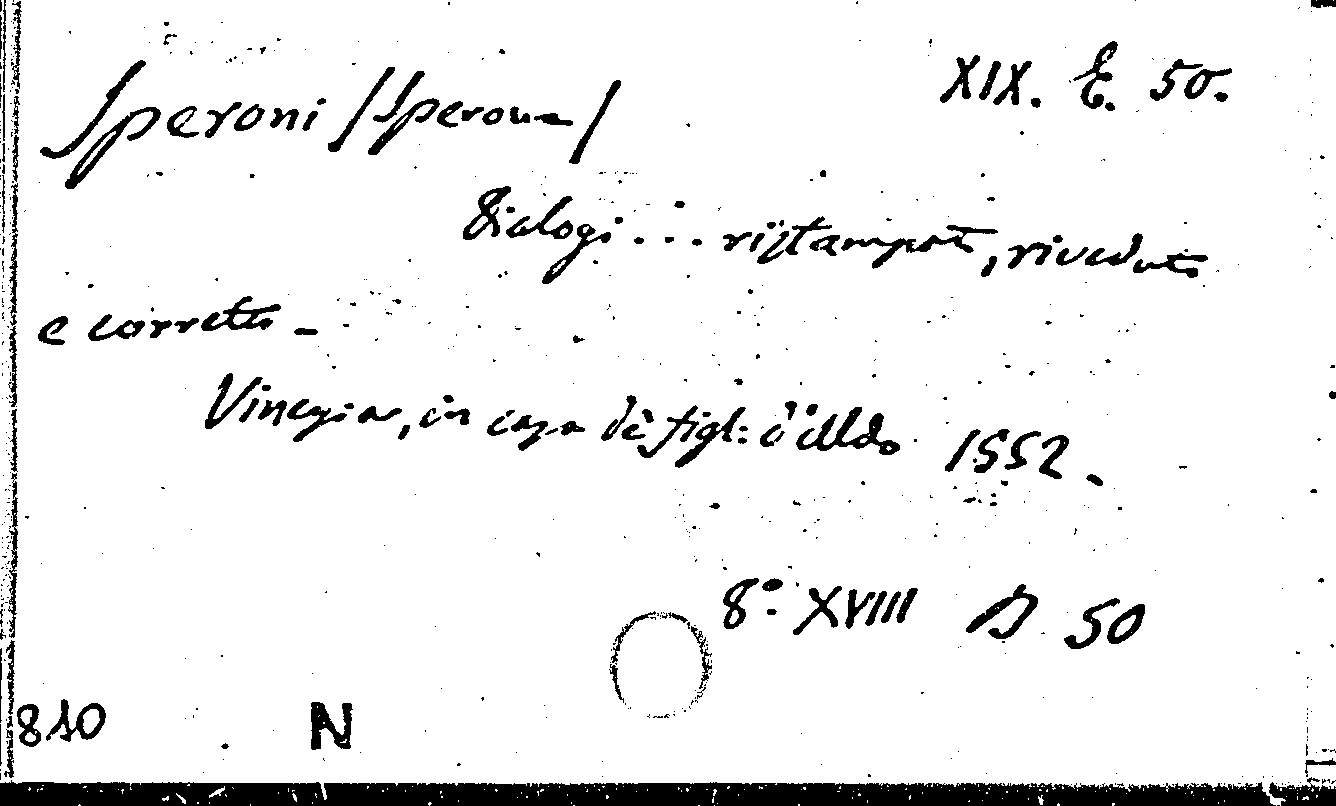 XIX. E. 50.
Speroni /Sperone/
Dialogi ... ristampati, riveduti
e corretti -
Vinegia, in casa dè figl: d'Aldo 1552.
8º XVIII D 50
810 N